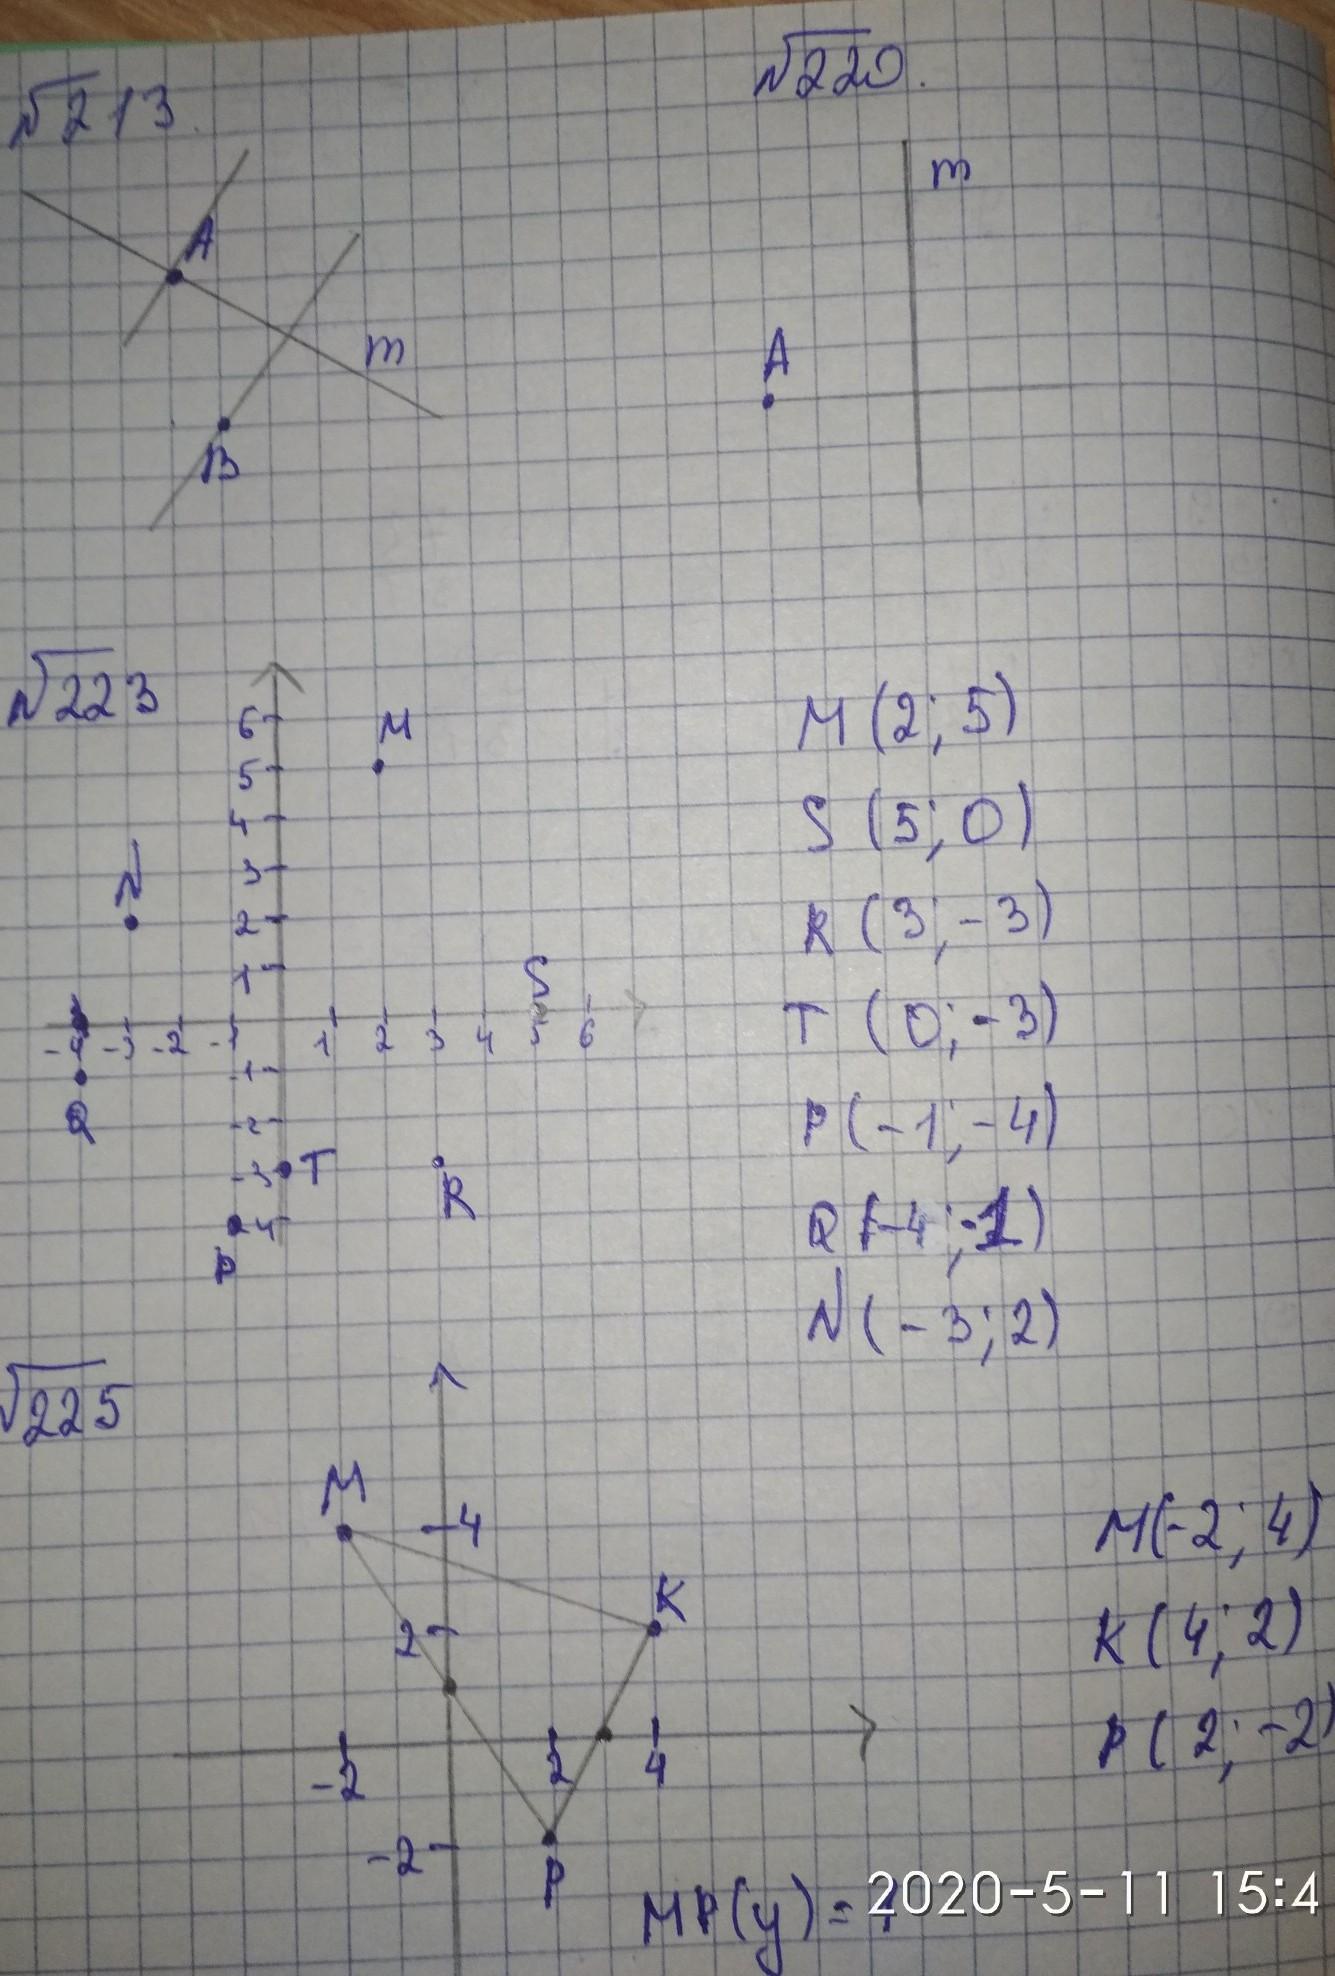 №213.
№220.
m
A
A
m
B
№223
6
5
4
3
2
1
M
N
S
-4 -3 -2 -1 1 2 3 4 5 6
-1
-2
-3
-4
Q
T
R
P
M (2; 5)
S (5; 0)
R (3; -3)
T (0; -3)
P (-1; -4)
Q (-4; -1)
N (-3; 2)
№225
M
4
K
2
-2 2 4
-2
P
M(-2; 4)
K (4; 2)
P (2; -2)
MP(y) =
2020-5-11 15:4